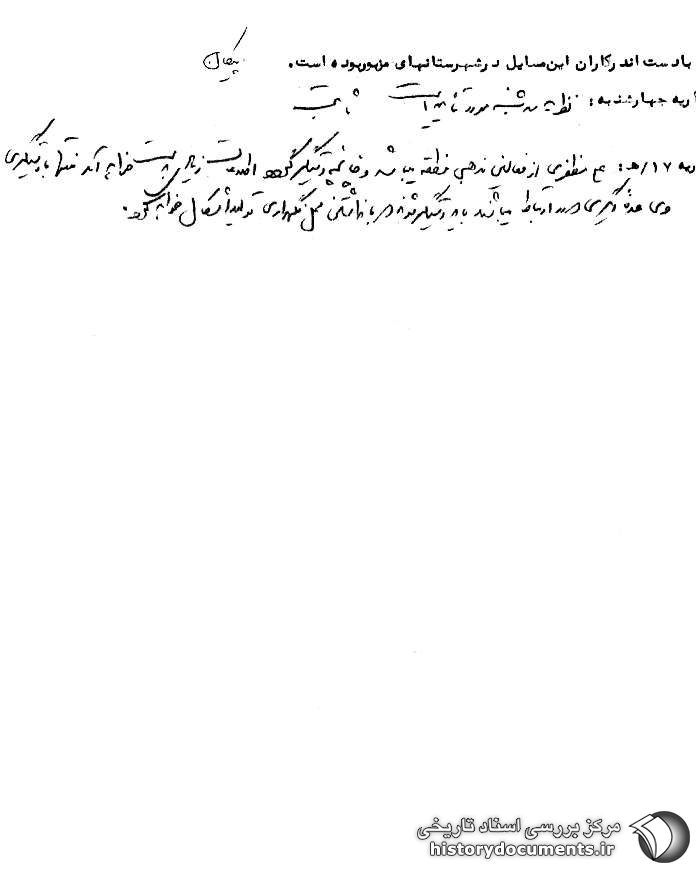 بادست اندرکاران این مسایل در شهرستانهای مزبور بوده است. پیکان
ریه چهارشنبه: نظریه سه شنبه مورد تأیید است
ریه ۱۷/هـ: مظفری از فعالین مذهبی منطقه میباشد و چنانچه دستگیر گردد اطلاعات زیادی بدست خواهد آمد منتها با دستگیری
وی عده دیگری که در ارتباط میباشند باید دستگیر شوند که بازداشتن محل نگهداری تولید اشکال خواهد کرد.
مرکز بررسی اسناد تاریخی
historydocuments.ir